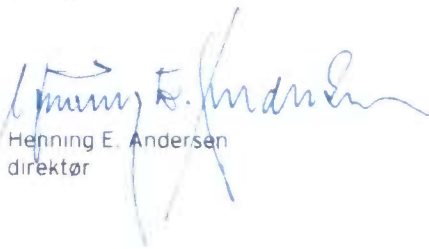 Henning E. Andersen
Henning E. Andersen
direktør